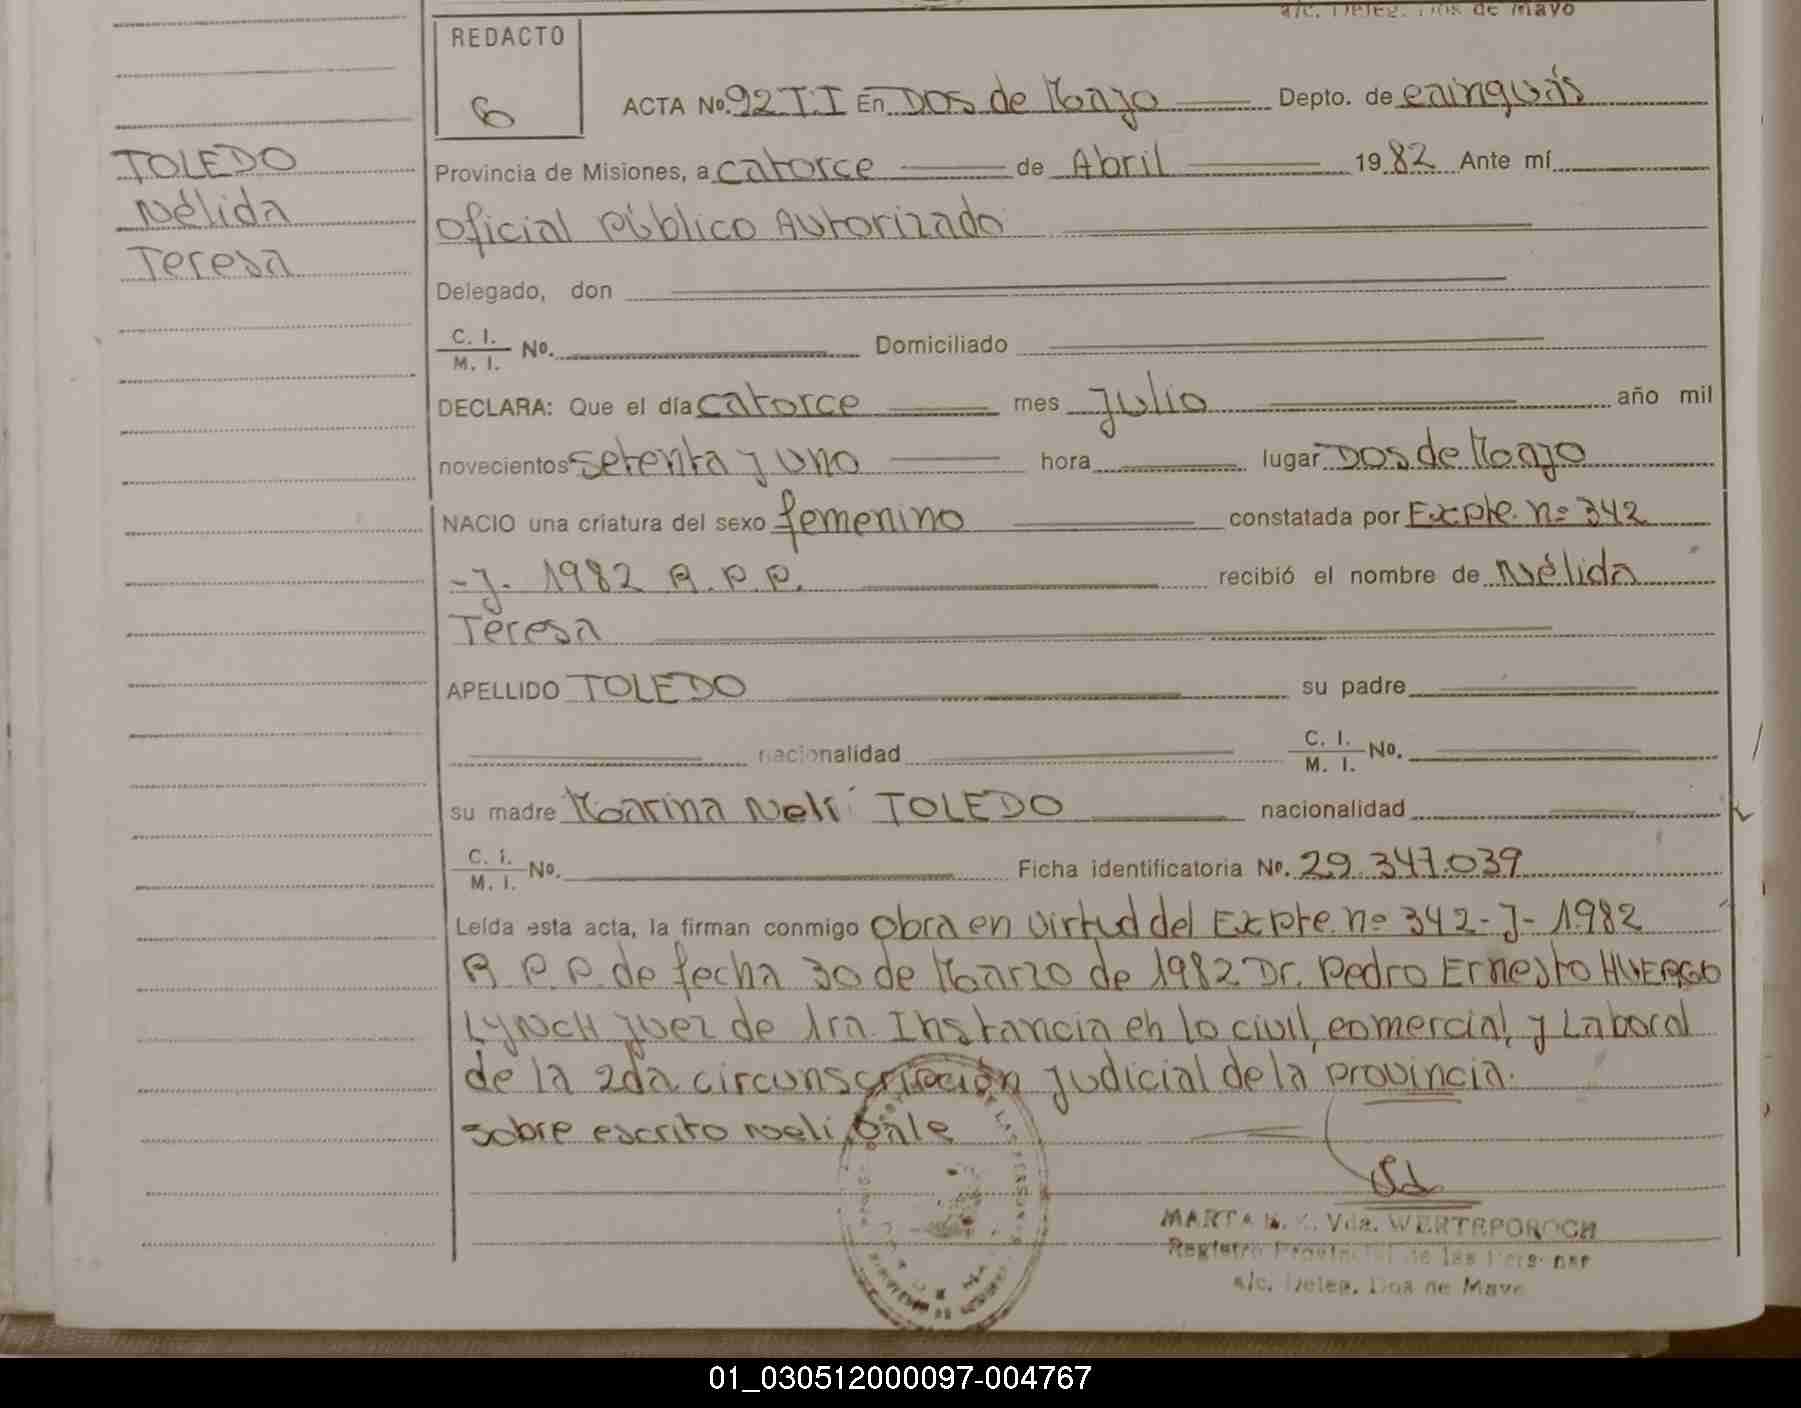 a/c. Deleg. Dos de Mayo
REDACTO
6
ACTA No. 92 TI En Dos de Mayo Depto. de Cainguás
TOLEDO
Nélida
Teresa
Provincia de Misiones, a catorce de Abril 1982 Ante mí
Oficial Público Autorizado
Delegado, don
C. I.
M. I. No. Domiciliado
DECLARA: Que el día catorce mes julio año mil
novecientos setenta y uno hora lugar Dos de Mayo
NACIO una criatura del sexo femenino constatada por Expte. nº 342
-J- 1982 A.P.P. recibió el nombre de Nélida
Teresa
APELLIDO TOLEDO su padre
nacionalidad C. I.
M. I. No.
su madre Marina Nelí TOLEDO nacionalidad
C. I.
M. I. No. Ficha identificatoria No. 29.347.039
Leída esta acta, la firman conmigo obra en virtud del Expte. nº 342-J-1982
A.P.P. de fecha 30 de Marzo de 1982 Dr. Pedro Ernesto HUERGO
LYNCH juez de 1ra Instancia en lo civil, comercial, y Laboral
de la 2da circunscripción judicial de la provincia.
sobre escrito Neli, Vale
MARTA Vda. WERTRPOROCH
Registro Provincial de las Personas
a/c. Deleg. Dos de Mayo
01_030512000097-004767